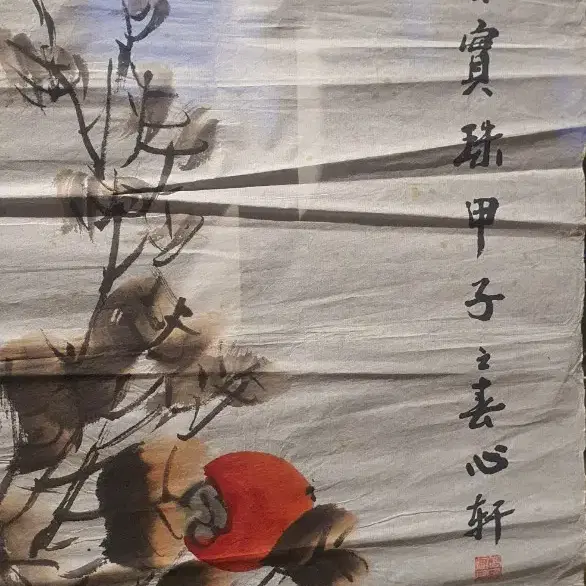 實珠甲子之春心軒